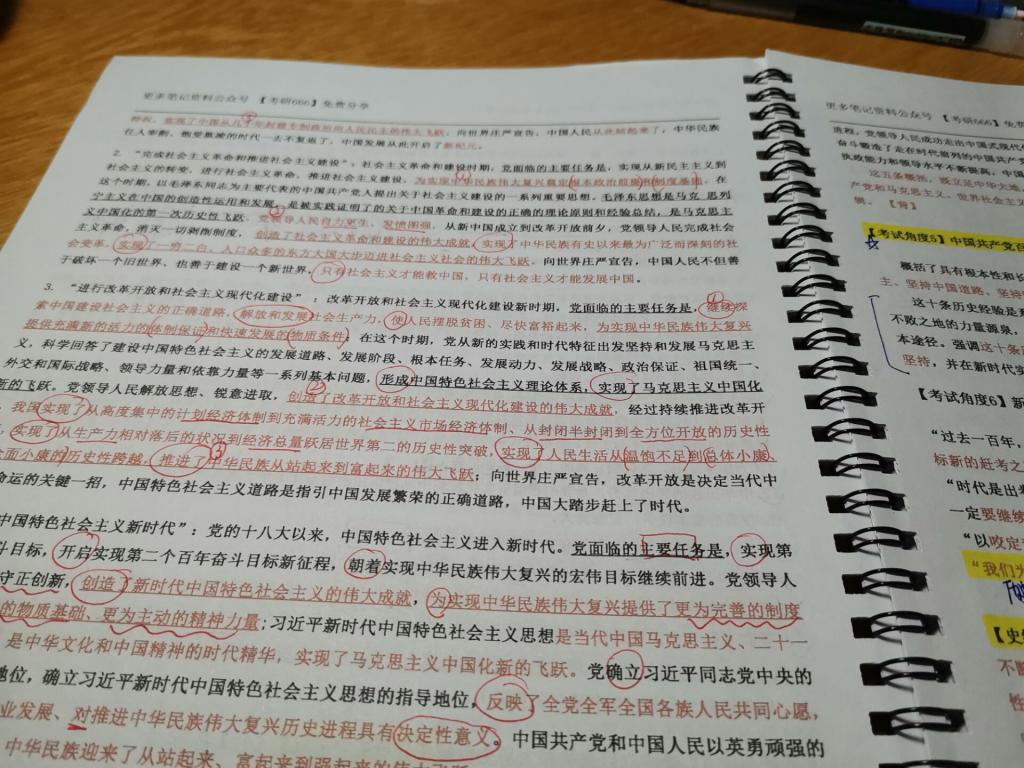 更多笔记资料公众号 【考研666】免费分享
特权，实现了中国从几千年封建专制政治向人民民主的伟大飞跃。向世界庄严宣告，中国人民从此站起来了，中华民族
任人宰割、饱受欺凌的时代一去不复返了，中国发展从此开启了新纪元。
2. “完成社会主义革命和推进社会主义建设”：社会主义革命和建设时期，党面临的主要任务是，实现从新民主主义到
社会主义的转变，进行社会主义革命，推进社会主义建设，为实现中华民族伟大复兴奠定根本政治前提和制度基础。在
这个时期，以毛泽东同志为主要代表的中国共产党人提出关于社会主义建设的一系列重要思想。毛泽东思想是马克 思列
宁主义在中国的创造性运用和发展，是被实践证明了的关于中国革命和建设的正确的理论原则和经验总结，是马克思主
义中国化的第一次历史性飞跃。党领导人民自力更生、发愤图强，从新中国成立到改革开放前夕，党领导人民完成社会
主义革命，消灭一切剥削制度，创造了社会主义革命和建设的伟大成就，实现了中华民族有史以来最为广泛而深刻的社
会变革，实现了一穷二白、人口众多的东方大国大步迈进社会主义社会的伟大飞跃。向世界庄严宣告，中国人民不但善
于破坏一个旧世界、也善于建设一个新世界，只有社会主义才能救中国，只有社会主义才能发展中国。
3. “进行改革开放和社会主义现代化建设”：改革开放和社会主义现代化建设新时期，党面临的主要任务是，继续探
索中国建设社会主义的正确道路，解放和发展社会生产力，使人民摆脱贫困、尽快富裕起来，为实现中华民族伟大复兴
提供充满新的活力的体制保证和快速发展的物质条件；在这个时期，党从新的实践和时代特征出发坚持和发展马克思主
义，科学回答了建设中国特色社会主义的发展道路、发展阶段、根本任务、发展动力、发展战略、政治保证、祖国统一、
外交和国际战略、领导力量和依靠力量等一系列基本问题，形成中国特色社会主义理论体系，实现了马克思主义中国化
新的飞跃。党领导人民解放思想、锐意进取，创造了改革开放和社会主义现代化建设的伟大成就，经过持续推进改革开
，我国实现了从高度集中的计划经济体制到充满活力的社会主义市场经济体制、从封闭半封闭到全方位开放的历史性
，实现了从生产力相对落后的状况到经济总量跃居世界第二的历史性突破，实现了人民生活从温饱不足到总体小康、
全面小康的历史性跨越，推进了中华民族从站起来到富起来的伟大飞跃；向世界庄严宣告，改革开放是决定当代中
命运的关键一招，中国特色社会主义道路是指引中国发展繁荣的正确道路，中国大踏步赶上了时代。
中国特色社会主义新时代”：党的十八大以来，中国特色社会主义进入新时代。党面临的主要任务是，实现第
斗目标，开启实现第二个百年奋斗目标新征程，朝着实现中华民族伟大复兴的宏伟目标继续前进。党领导人
守正创新，创造了新时代中国特色社会主义的伟大成就，为实现中华民族伟大复兴提供了更为完善的制度
的物质基础、更为主动的精神力量；习近平新时代中国特色社会主义思想是当代中国马克思主义、二十一
是中华文化和中国精神的时代精华，实现了马克思主义中国化新的飞跃。党确立习近平同志党中央的
地位，确立习近平新时代中国特色社会主义思想的指导地位，反映了全党全军全国各族人民共同心愿，
业发展、对推进中华民族伟大复兴历史进程具有决定性意义。中国共产党和中国人民以英勇顽强的
中华民族迎来了从站起来、富起来到强起来的伟大飞跃
更多笔记资料公众号 【考研666】免
进程。党领导人民成功走出中国式现代化
奋斗锻造了走在时代前列的中国共产党
执政能力和领导水平不断提高，中国
这五条概括，既立足中华大地
产党和马克思主义、世界社会主义
【背】
【考试角度5】中国共产党百
概括了具有根本性和长
主、坚持中国道路、坚持
这十条历史经验是
不败之地的力量源泉，
本途径。强调这十条
坚持，并在新时代实
【考试角度6】新
“过去一百年，
标新的赶考之
“时代是出卷
一定要继续
“以咬定
“我们为
【史
不断
性